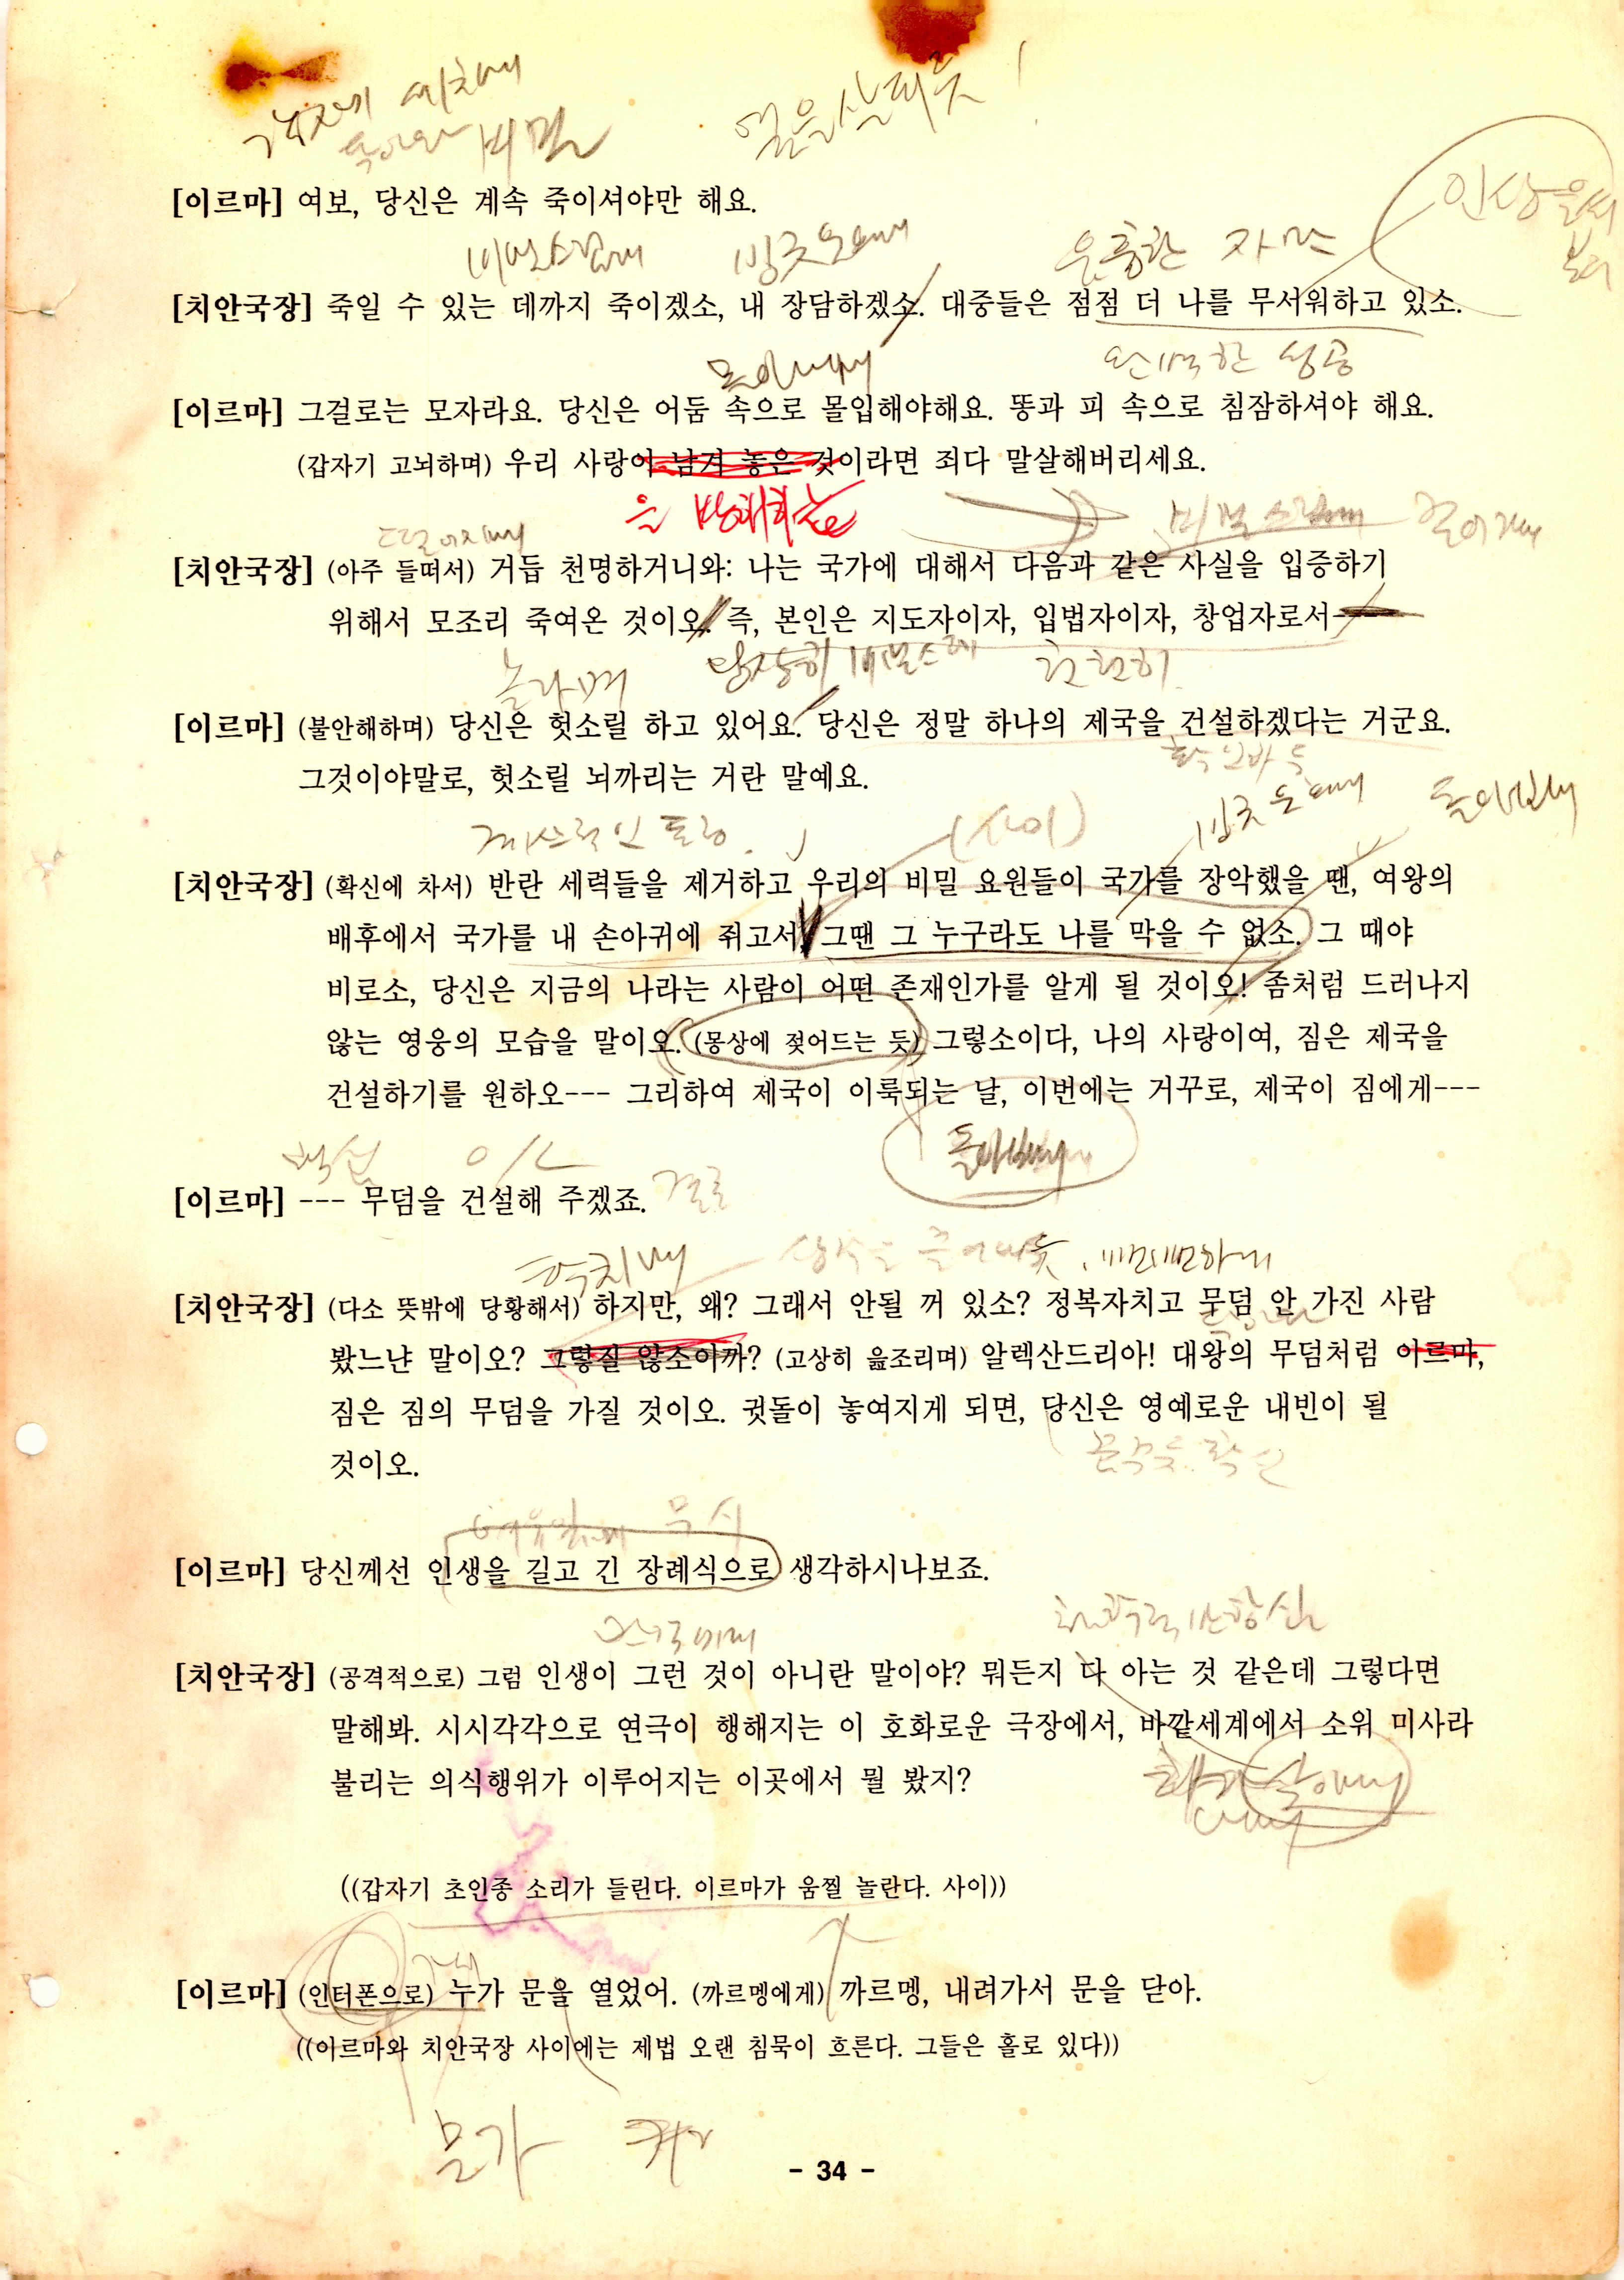 비밀
옆을 살피듯!
인상을 써
[이르마] 여보, 당신은 계속 죽이셔야만 해요.
비밀스럽게 빙긋 웃으며 음흉한 자만
[치안국장] 죽일 수 있는 데까지 죽이겠소, 내 장담하겠소. 대중들은 점점 더 나를 무서워하고 있소.
완벽한 성공
[이르마] 그걸로는 모자라요. 당신은 어둠 속으로 몰입해야해요. 똥과 피 속으로 침잠하셔야 해요.
(갑자기 고뇌하며) 우리 사랑이 남겨 놓은 것이라면 죄다 말살해버리세요.
을 방해하는
[치안국장] (아주 들떠서) 거듭 천명하거니와: 나는 국가에 대해서 다음과 같은 사실을 입증하기
위해서 모조리 죽여온 것이오. 즉, 본인은 지도자이자, 입법자이자, 창업자로서
놀라며 당당히 비밀스레 천천히
[이르마] (불안해하며) 당신은 헛소릴 하고 있어요. 당신은 정말 하나의 제국을 건설하겠다는 거군요.
그것이야말로, 헛소릴 뇌까리는 거란 말예요.
(사이) 돌아보며
[치안국장] (확신에 차서) 반란 세력들을 제거하고 우리의 비밀 요원들이 국가를 장악했을 땐, 여왕의
배후에서 국가를 내 손아귀에 쥐고서, 그땐 그 누구라도 나를 막을 수 없소. 그 때야
비로소, 당신은 지금의 나라는 사람이 어떤 존재인가를 알게 될 것이오! 좀처럼 드러나지
않는 영웅의 모습을 말이오. (몽상에 젖어드는 듯) 그렇소이다, 나의 사랑이여, 짐은 제국을
건설하기를 원하오--- 그리하여 제국이 이룩되는 날, 이번에는 거꾸로, 제국이 짐에게---
돌아보며
[이르마] --- 무덤을 건설해 주겠죠. 결론
[치안국장] (다소 뜻밖에 당황해서) 하지만, 왜? 그래서 안될 꺼 있소? 정복자치고 무덤 안 가진 사람
봤느냔 말이오? 그렇질 않소이까? (고상히 읊조리며) 알렉산드리아! 대왕의 무덤처럼 이르마,
짐은 짐의 무덤을 가질 것이오. 귓돌이 놓여지게 되면, 당신은 영예로운 내빈이 될
것이오.
무시
[이르마] 당신께선 인생을 길고 긴 장례식으로 생각하시나보죠.
[치안국장] (공격적으로) 그럼 인생이 그런 것이 아니란 말이야? 뭐든지 다 아는 것 같은데 그렇다면
말해봐. 시시각각으로 연극이 행해지는 이 호화로운 극장에서, 바깥세계에서 소위 미사라
불리는 의식행위가 이루어지는 이곳에서 뭘 봤지?
((갑자기 초인종 소리가 들린다. 이르마가 움찔 놀란다. 사이))
[이르마] (인터폰으로) 누가 문을 열었어. (까르멩에게) 까르멩, 내려가서 문을 닫아.
((아르마와 치안국장 사이에는 제법 오랜 침묵이 흐른다. 그들은 홀로 있다))
문가
- 34 -